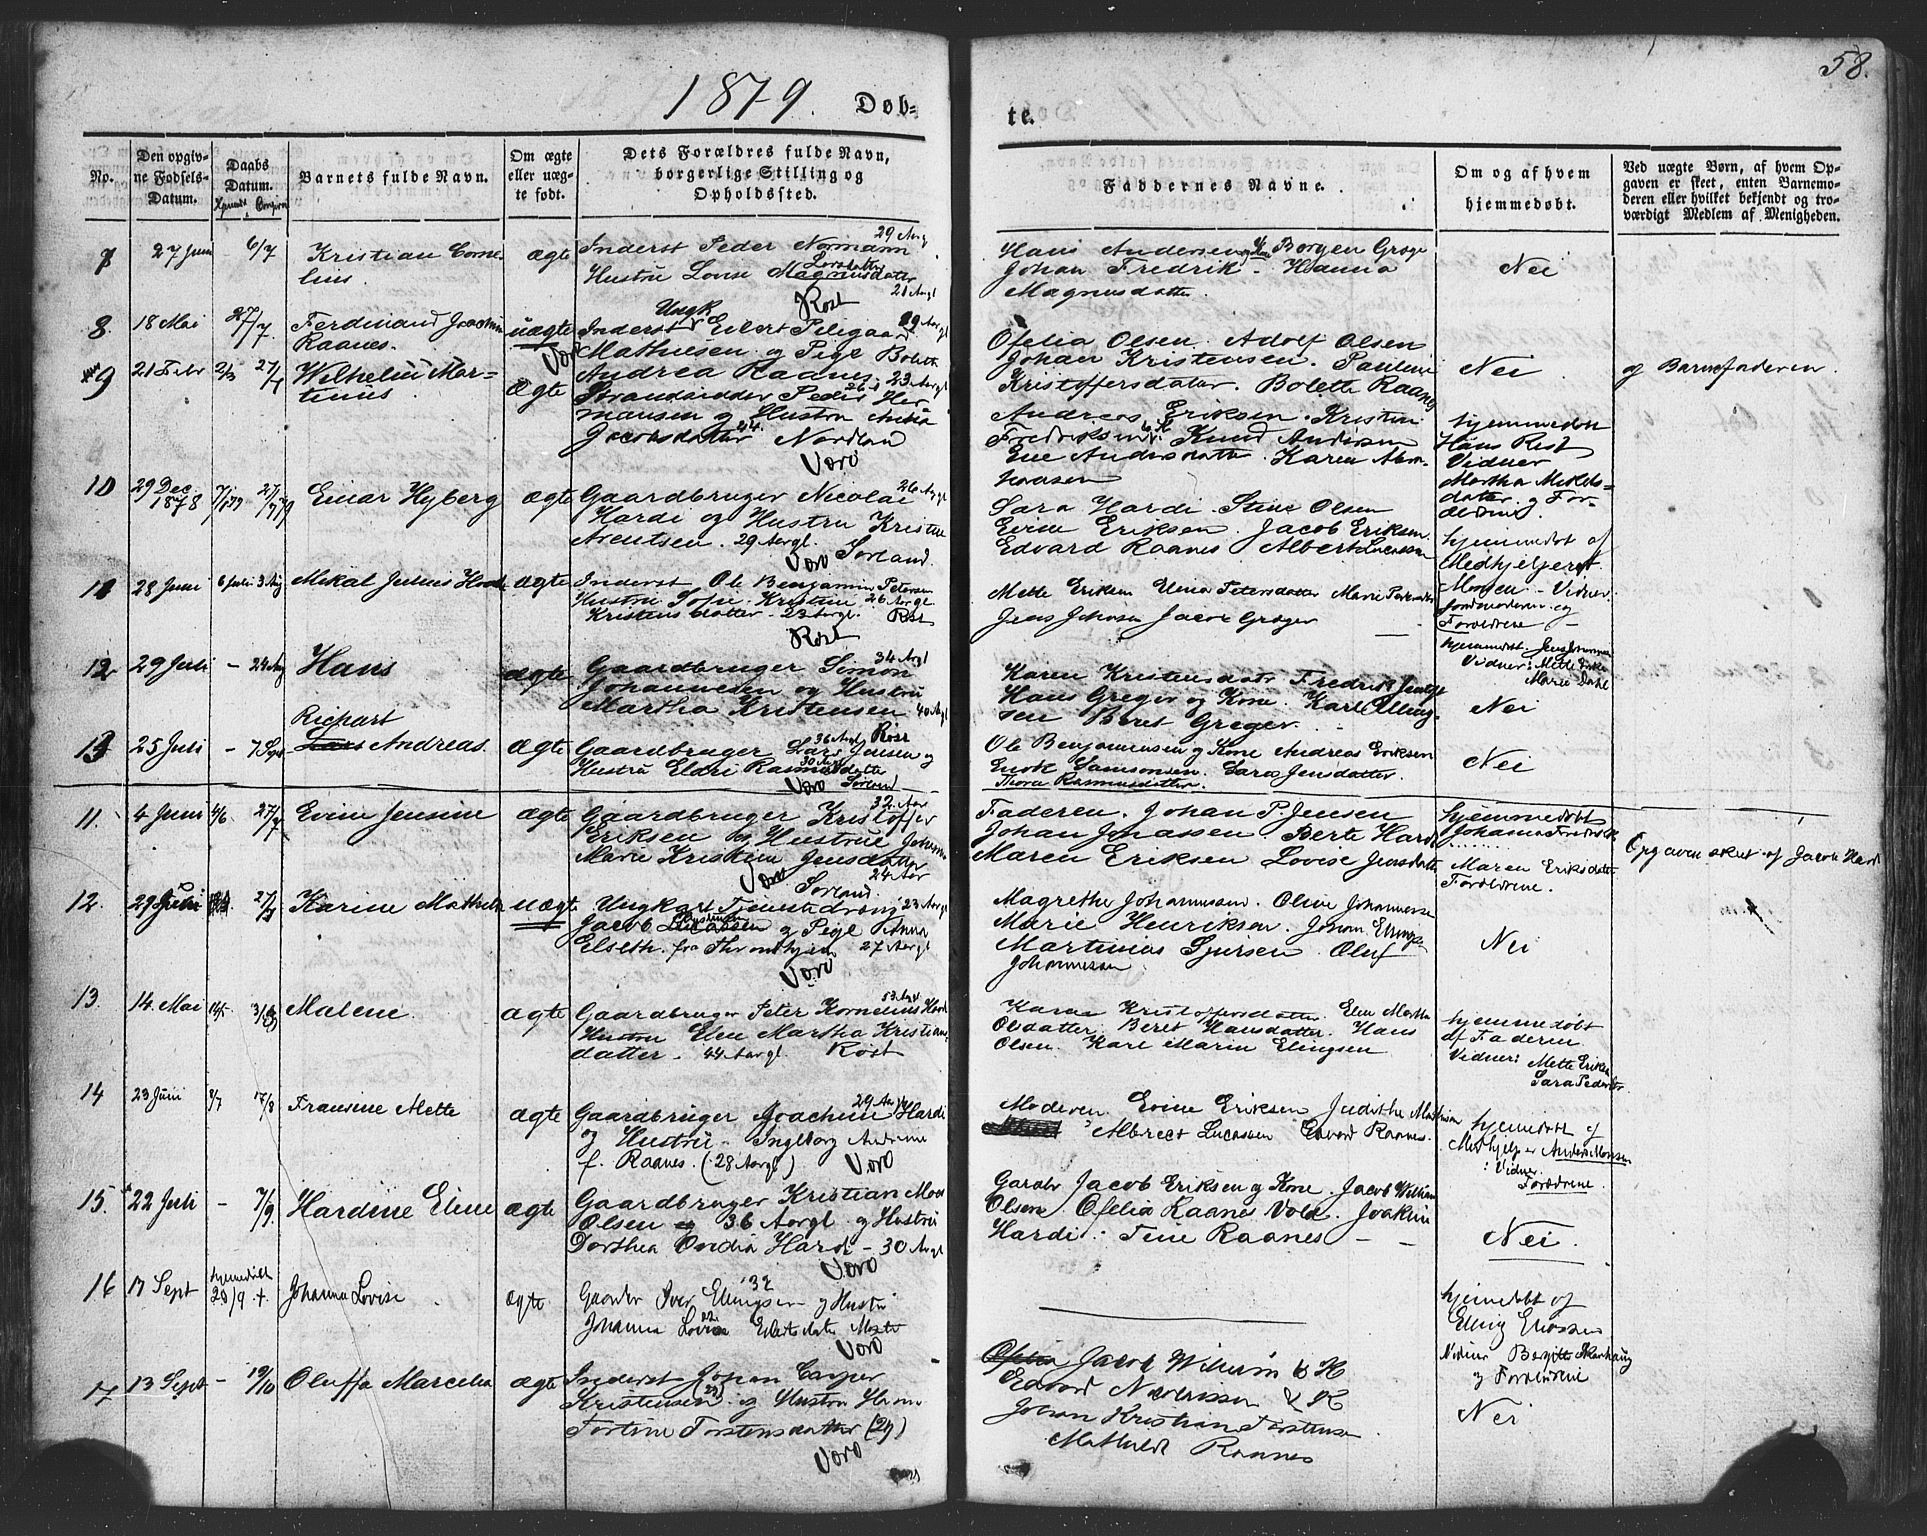 58.
1879. Døb=
te.
No.
Den opgiv=
ne Fødsels=
Datum.
Daabs
Datum.
Barnets fulde Navn.
Om ægte
eller uæg=
te født.
Dets Forældres fulde Navn,
borgerlige Stilling og
Opholdssted.
Faddernes Navne.
Om og af hvem
hjemmedøbt.
Ved uægte Børn, af hvem Op=
gaven er skeet, enten Barnemo=
deren eller hvilket bekjendt og tro=
værdigt Medlem af Menigheden.
7 27 Juni 6/7 Kristian Corne
lius. ægte
Inderst Peder Normann 29 Aarg
Hustru Lovise Magnusdatter
21 Aargl
Røst
Hans Andersen Borgen Greger
Johan Fredrik - Hanna
Magnusdatter.
Nei
8 18 Mai 27/7 Ferdinand Joachim
Raanes. uægte
Ungk
Inderst Eilert Peligaard 29 Aargl
Mathiesen og Pige Bolette
Andrea Raanes. 23 Aargl
Værø
Ofelia Olsen. Adolf Olsen
Johan Kristensen. Pauline
Kristoffersdatter. Bolette Raanes
Nei
og Barnefaderen.
9 21 Febr 2/3 27/7 Wilhelm Mar=
tinus ægte
Strandsidder Peder Her
mansen og Hustru Anna
Jacobsdatter 24. Nordland
Værø
Andreas Eriksen. Kristine
Fredriksen. Knud Andersen
Ene Andersdatter. Karen Abra
hamsen
hjemmedøbt
Hans Rist
Vidner
Martha Mikkels=
datter og For=
ældrene.
10 29 Dec.
1878 7/1 79 27/7 79 Einar Hyberg ægte
Gaardbruger Nicolai 26 Aargl
Hardi og Hustru Kristine
Arentsen. 29 Aargl.
Værø Sørland.
Sara Hardi. Stine Olsen
Evine Eriksen. Jacob Eriksen.
Edvard Raanes. Albert Lucassen
hjemmedøbt af
Medhjelperst
Monsen - Vidner.
Jordmoderen og
Forældrene -
11 28 Juni 6 Juli 3 Aug Mikal Julius ægte
Inderst Ole Benjamin Petersen
Hustru Sofie Kristine 26 Aargl
Kristensdatter 23 Aargl. Røst
Røst
Mette Eriksen Petersdatter Marie Pedersdatter
Jens Johnsen Jacob Greger
hjemmedøbt
Vidner: Mette Eriksen
Marie Dahl
12 29 Juli - 24 Aug Hans ægte
Gaardbruger Simon 34 Aargl
Johannesen og Hustru
Martha Kristensen 40 Aargl
Røst
Karen Kristensdatter Fredrik
Hans Greger og Kone. Karl Elling=
sen Beret Greger.
Nei
13 25 Juli - 7 Sept Richart
Lars Andreas. ægte
Gaardbruger Lars Jensen og 36 Aargl
Hustru Eldri Rasmusdatter 30 Aargl
Værø Sørland
Ole Benjaminsen og Kone Andreas Eriksen
Enok Samsonsen. Sara Jensdatter.
Thora Rasmusdatter.
Nei
11. 4 Juni 4/6 27/7 Evine Jensine ægte
Gaardbruger Kristoffer 32 Aar
Eriksen og Hustrue Johanna
Marie Kristine Jensdatter
24 Aar
Værø Sørland.
Faderen. Johan P. Jensen
Johan Jonassen. Berte Hardi
Maren Eriksen Lovise Jensdatter
hjemmedøbt
Johanna Fredriksen
Maren Eriksdatter
Forældrene.
Opgaven skeet af Jacob Hardi
12. 29 Juni 27/7 Karine Mathilde uægte
Ungkarl Tjenestedreng 23 Aargl
Jacob Lucassen og Pige Anna
Elseth. fra Throndhjem 27 Aargl
Værø
Magrethe Johannesen. Oline Johannesen
Marie Henriksen. Johan Ellingsen
Martinus Sjursen Oluf
Johannesen
Nei
13. 14 Mai 14/5 3/8 Malene. ægte
Gaardbruger Peter Kornelius 53 Aargl
Hustru Elen Martha Kristians
datter. 44 Aargl. Røst
Karen Kristoffersdatter. Elen Martha
Olsdatter. Beret Hansdatter. Hans
Olsen. Karl Marin Elingsen
hjemmedøbt
af Faderen.
Vidner: Mette Eriksen
Sara Pedersdatter
14 23 Juni 9/7 17/8 Fransine Mette ægte
Gaardbruger Joachim Hardi 29 Aargl
og Hustru - Ingeborg Andrine
f. Raanes. (28 Aargl) Værø
Moderen. Evine Eriksen Judithe Mathisen
Albrect Lucassen Edvard Raanes.
hjemmedøbt af
Medhjelper Anders Monsen
: Vidner.
Forældrene.
15. 22 Juli - 7/9. Hardine Eline ægte
Gaardbruger Kristian Moe
Olsen 36 Aargl. og Hustru
Dorthea Ovidia Hardi - 30 Aargl
Værø
Gaardbr Jacob Eriksen og Kone. Jacob William
Olsen Ofelia Raanes Vold. Joakim
Hardi. Tine Raanes - -
Nei.
16 17 Sept hjemmedøbt
20/9 + Johanna Lovise ægte.
Gaardbr Iver Ellingsen '32 og Hustru
Johanna Lovise Eilertsdatter
Værø
hjemmedøbt af
Elling Eliassen
Vidner Marhaug
og Forældrene
17 13 Sept - 19/10 Oluffa Marcelia ægte
Inderst Johan Casper
Kristensen og Hustru Hanna
Tortine Torstensdatter (29)
Værø
Jacob William & H
Edvard & K
Johan Kristian Torstensen
Mathilde Raanes
Nei